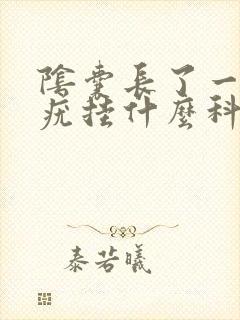 陰囊長了一
疣挂什麼科
泰若曦